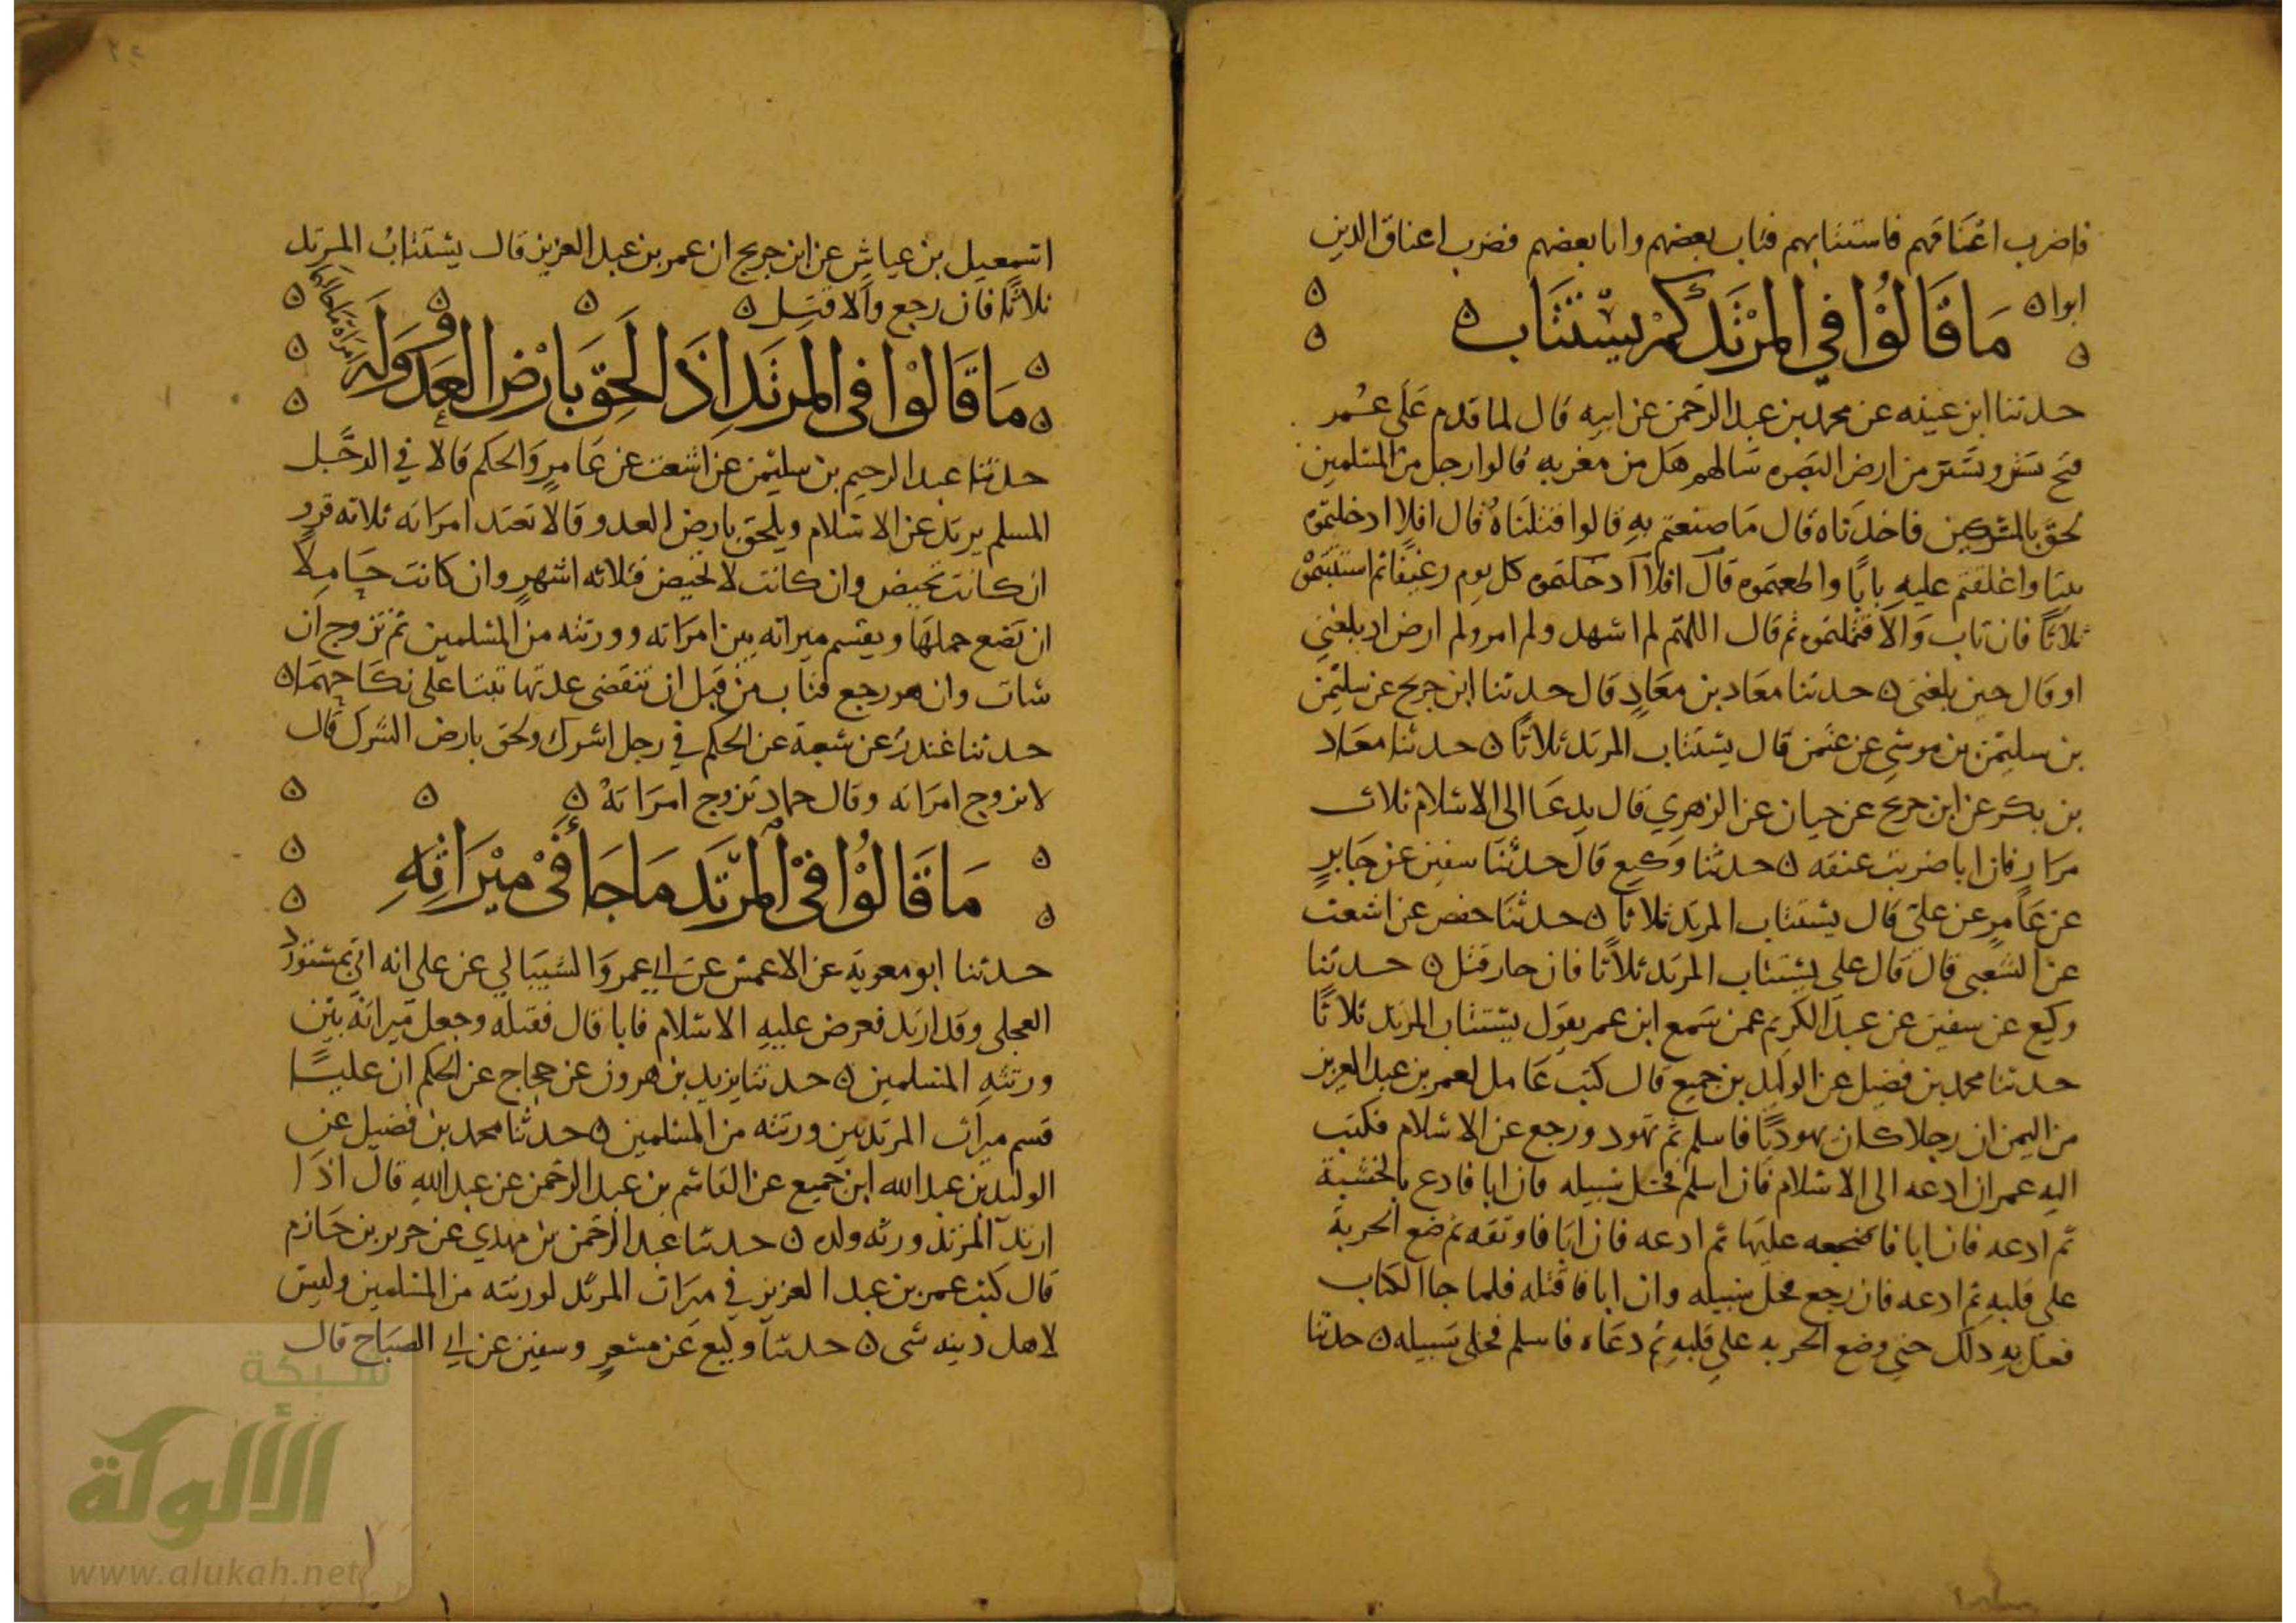 فاضرب اعناقهم فاستتابهم فتاب بعضهم وابا بعضهم فضرب اعناق الذين
ابوا ه
ما قالوا في المرتد كم يستتاب ه
حدثنا ابن عيينه عن محمد بن عبد الرحمن عن ابيه قال لما قدم على عمر
فتح تستر وتستر من ارض البصره سالهم هل من مغربه قالوا رجل من المسلمين
لحق بالمشركين فاخذناه قال ما صنعتم به قالوا قتلناه قال افلا ادخلتموه
بيتا واغلقتم عليه بابا واطعمتموه كل يوم رغيفا ثم استتبتموه
ثلاثا فان تاب والا قتلتموه ثم قال اللهم لم اشهد ولم امر ولم ارض اذ بلغني
او قال حين بلغني ه حدثنا معاذ بن معاذ قال حدثنا ابن جريج عن سليمن
بن سليمن بن موسى عن عثمن قال يستتاب المرتد ثلاثا ه حدثنا معاذ
بن بكر عن ابن جريج عن حيان عن الزهري قال يدعا الى الاسلام ثلاث
مرار فان ابا ضربت عنقه ه حدثنا وكيع قال حدثنا سفين عن جابر
عن عامر عن علي قال يستتاب المرتد ثلاثا ه حدثنا حفص عن اشعث
عن الشعبي قال قال علي يستتاب المرتد ثلاثا فان عاد قتل ه حدثنا
وكيع عن سفين عن عبد الكريم عمن سمع ابن عمر يقول يستتاب المرتد ثلاثا
حدثنا محمد بن فضيل عن الوليد بن جميع قال كتب عامل لعمر بن عبد العزيز
من اليمن ان رجلا كان يهوديا فاسلم ثم تهود ورجع عن الاسلام فكتب
اليه عمر ان ادعه الى الاسلام فان اسلم فخل سبيله فان ابا فادع بالخشبة
ثم ادعه فان ابا فاضجعه عليها ثم ادعه فان ابا فاوثقه ثم ضع الحربة
على قلبه ثم ادعه فان رجع فخل سبيله وان ابا فاقتله فلما جا الكتاب
فعل به ذلك حتى وضع الحربه على قلبه ثم دعاه فاسلم فخلى سبيله ه حدثنا
اسمعيل بن عياش عن ابن جريج ان عمر بن عبد العزيز قال يستتاب المرتد
ثلاثا فان رجع والا قتل ه
ما قالوا في المرتد اذا لحق بارض العدو وله امراة ما حالهما
حدثنا عبد الرحيم بن سليمن عن اشعث عن عامر والحكم قالا في الرجل
المسلم يرتد عن الاسلام ويلحق بارض العدو قالا تعتد امراته ثلاثه قرو
ان كانت تحيض وان كانت لا تحيض فثلاثه اشهر وان كانت حاملا
ان تضع حملها ويقسم ميراثه بين امراته وورثته من المسلمين ثم تزوج ان
شات وان هو رجع فتاب من قبل ان تنقضي عدتها ثبتا على نكاحهما ه
حدثنا غندر عن شعبة عن الحكم في رجل اشرك ولحق بارض الشرك قال
لا تزوج امراته وقال حماد تزوج امراته ه
ما قالوا في المرتد ما جا في ميراثه
حدثنا ابو معوية عن الاعمش عن ابي عمرو الشيباني عن علي انه اتي بمستورد
العجلي وقد ارتد فعرض عليه الاسلام فابا قال فقتله وجعل ميراثه بين
ورثته المسلمين ه حدثنا يزيد بن هرون عن حجاج عن الحكم ان عليا
قسم ميراث المرتد بين ورثته من المسلمين ه حدثنا محمد بن فضيل عن
الوليد بن عبد الله ابن جميع عن القاسم بن عبد الرحمن عن عبد الله قال اذا
ارتد المرتد ورثه ولده ه حدثنا عبد الرحمن بن مهدي عن جرير بن حازم
قال كتب عمر بن عبد العزيز في ميراث المرتد لورثته من المسلمين وليس
لاهل دينه شى ه حدثنا وكيع عن مسعر وسفين عن ابي الصباح قال
شبكة
الألوكة
www.alukah.net